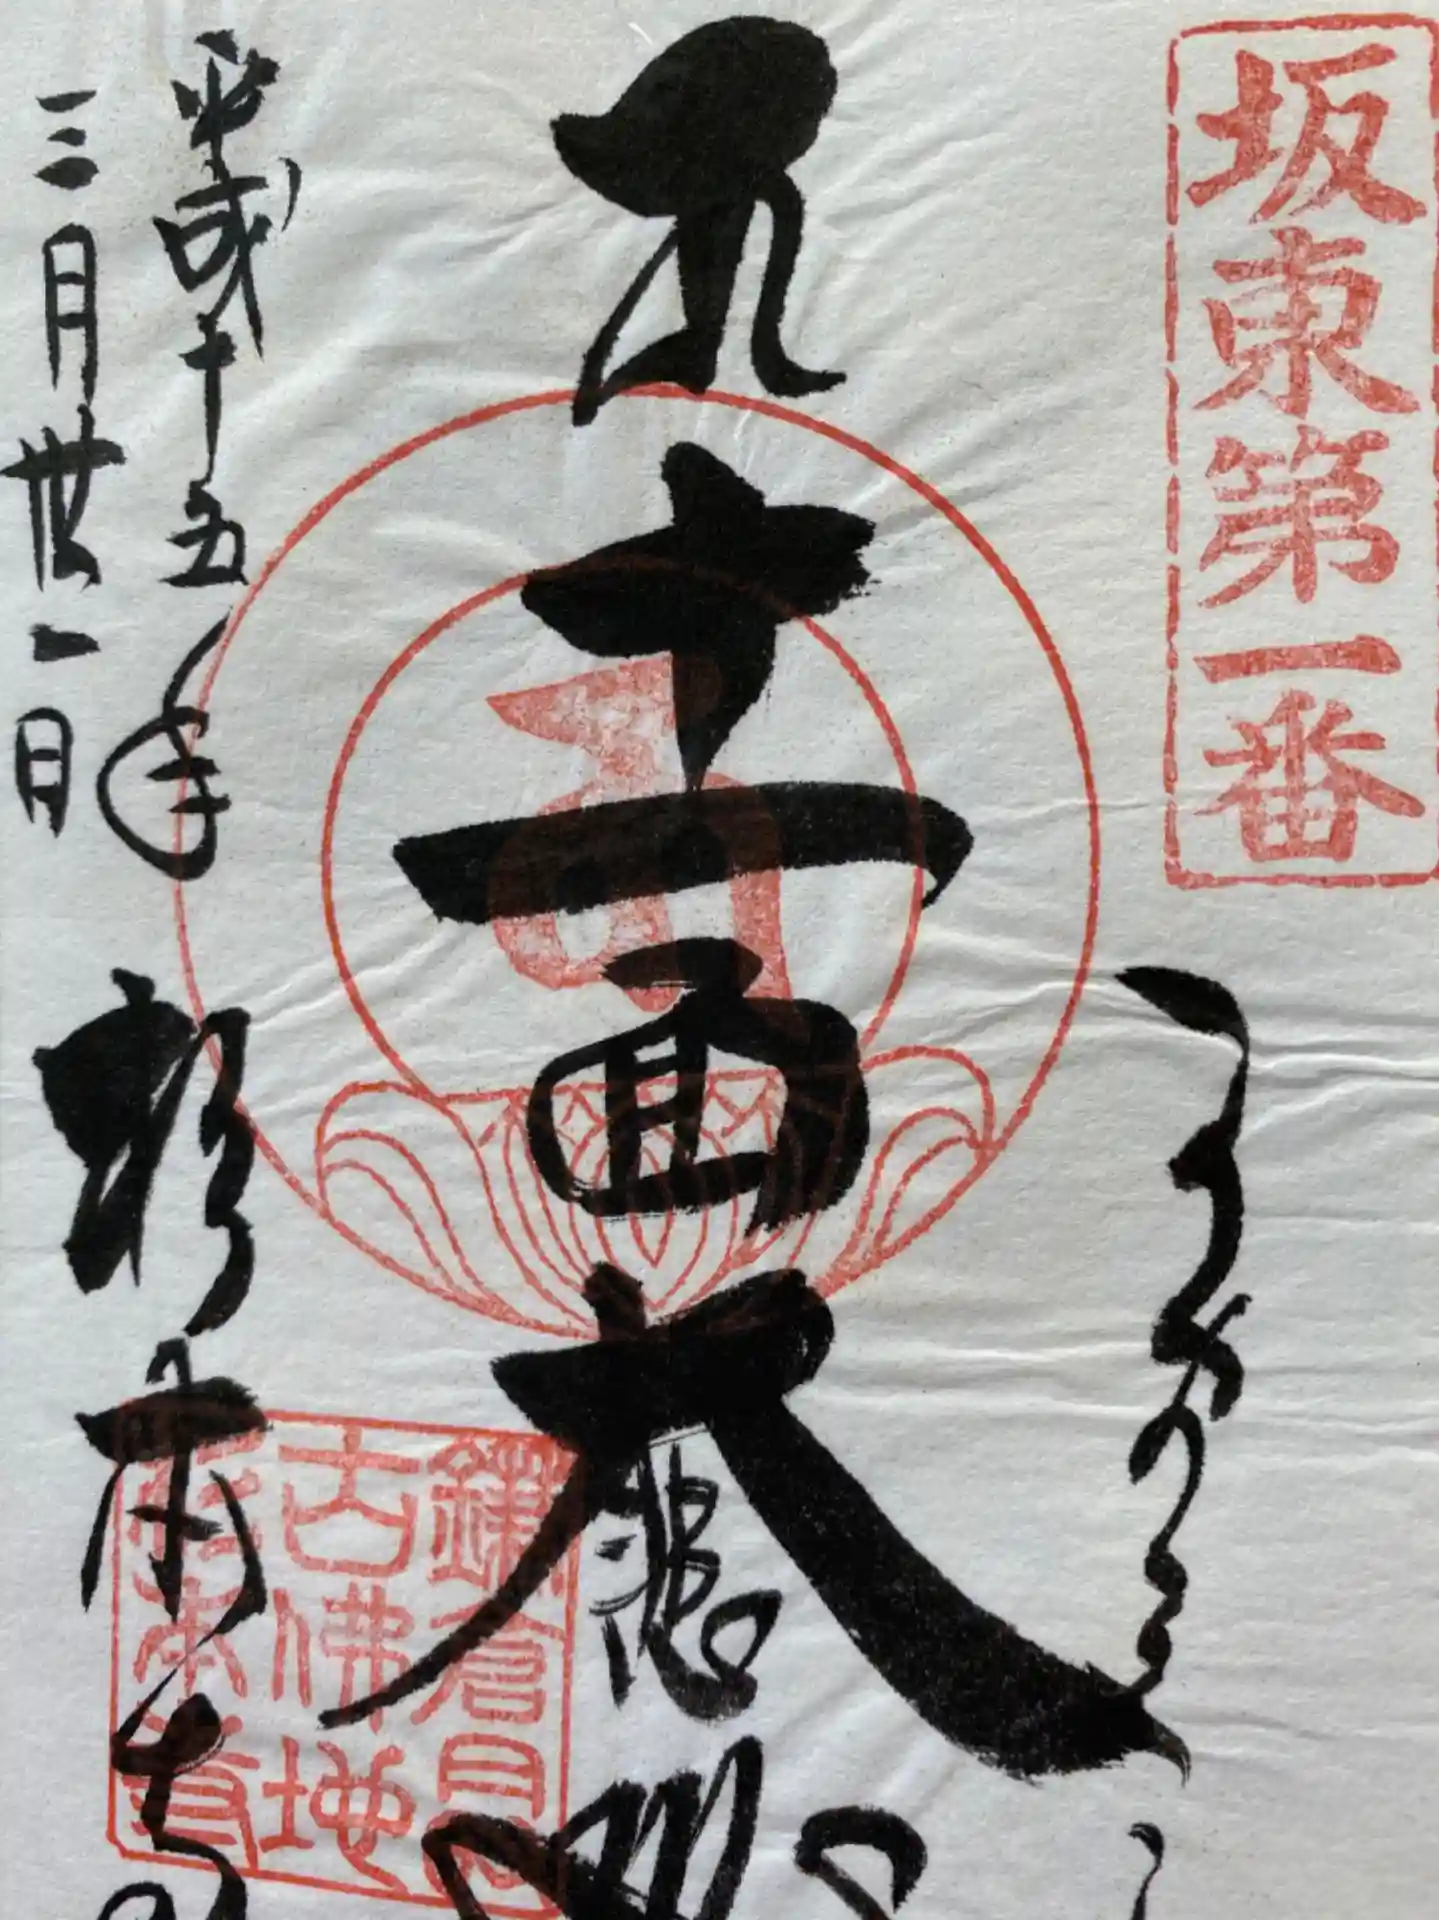 坂東第一番
十一面大悲
平成十五年
三月丗一日
杉本寺
鎌倉最
古佛地
杉本寺